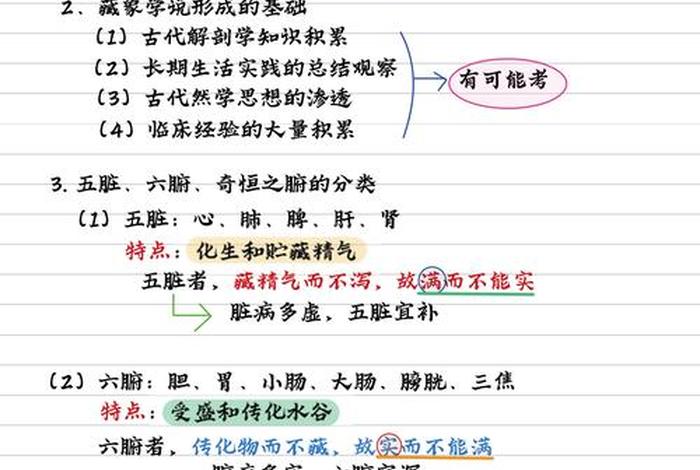 2、藏象学说形成的基础
(1) 古代解剖学知识积累
(2) 长期生活实践的总结观察
(3) 古代然学思想的渗透
(4) 临床经验的大量积累
有可能考
3. 五脏、六腑、奇恒之腑的分类
(1) 五脏：心、肺、脾、肝、肾
特点：化生和贮藏精气
五脏者，藏精气而不泻，故满而不能实
脏病多虚，五脏宜补
(2) 六腑：胆、胃、小肠、大肠、膀胱、三焦
特点：受盛和传化水谷
六腑者，传化物而不藏，故实而不能满